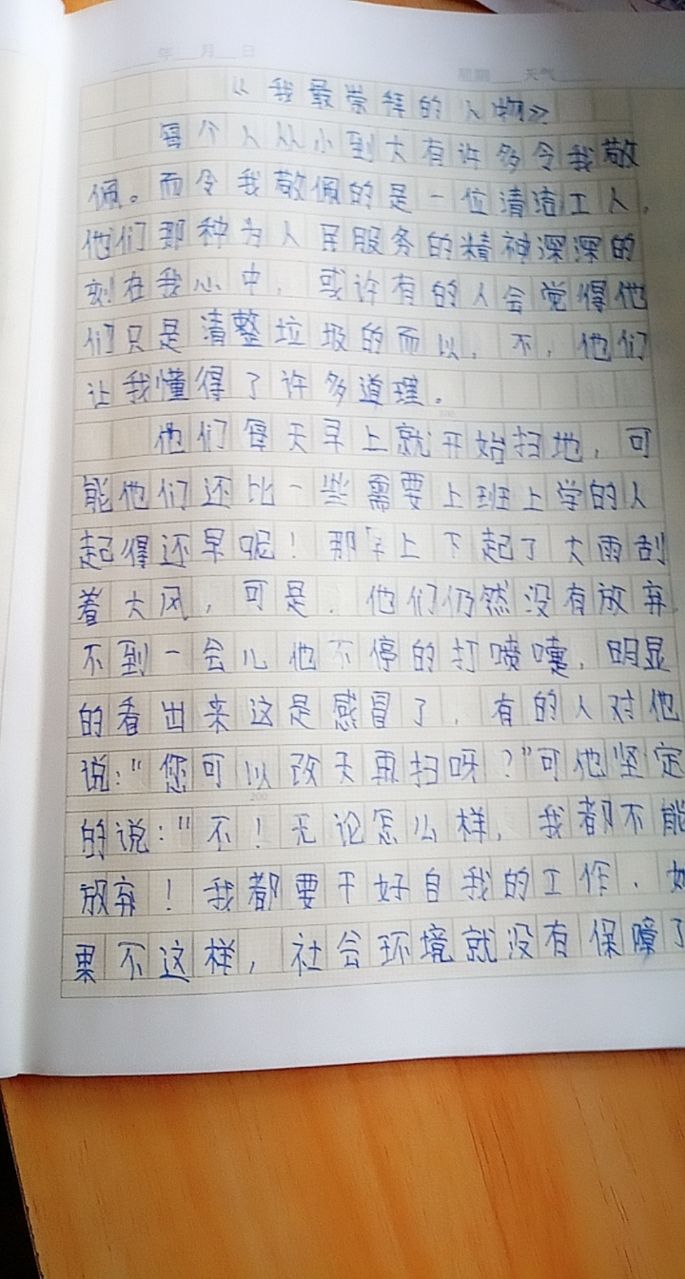 年 月 日
星期 天气
《我最崇拜的人物》
每个人从小到大有许多令我敬
佩。而令我敬佩的是一位清洁工人,
他们那种为人民服务的精神深深的
刻在我心中,或许有的人会觉得他
们只是清整垃圾的而以,不,他们
让我懂得了许多道理。
他们每天早上就开始扫地,可
能他们还比一些需要上班上学的人
起得还早呢!那上下起了大雨刮
着大风,可是,他们仍然没有放弃,
不到一会儿他不停的打喷嚏,明显
的看出来这是感冒了,有的人对他
说:"您可以改天再扫呀?"可他坚定
的说:"不!无论怎么样,我都不能
放弃!我都要干好自我的工作,如
果不这样,社会环境就没有保障了
100
200